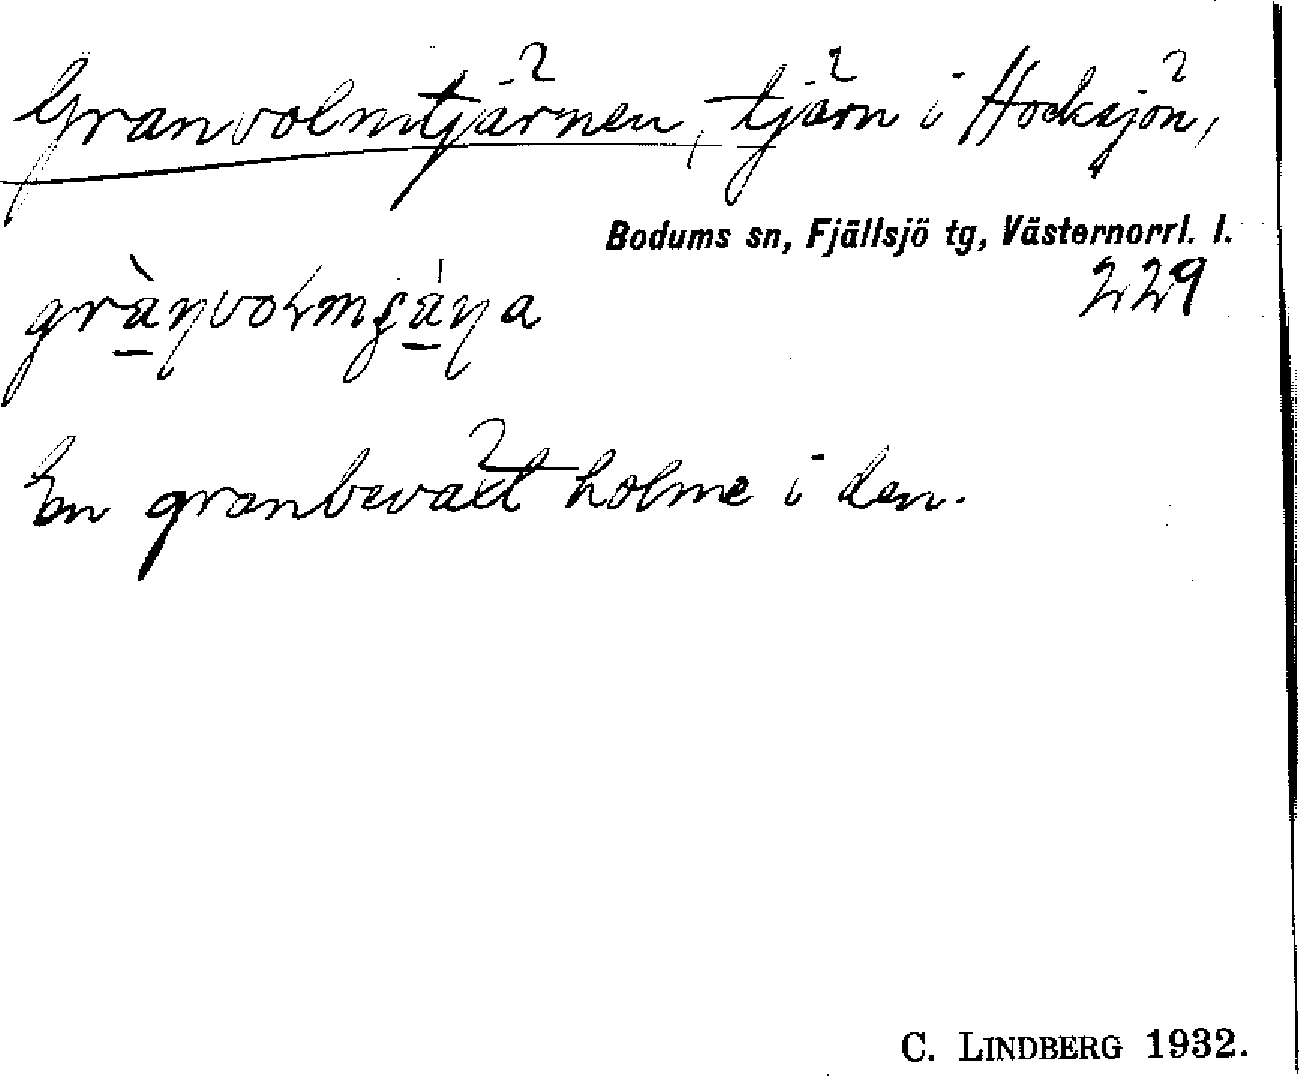 Granvolmtjärnen, tjärn i Hocksjön,
Bodums sn, Fjällsjö tg, Västernorrl. l.
229
En granbeväxt holme i den.
C. LINDBERG 1932.